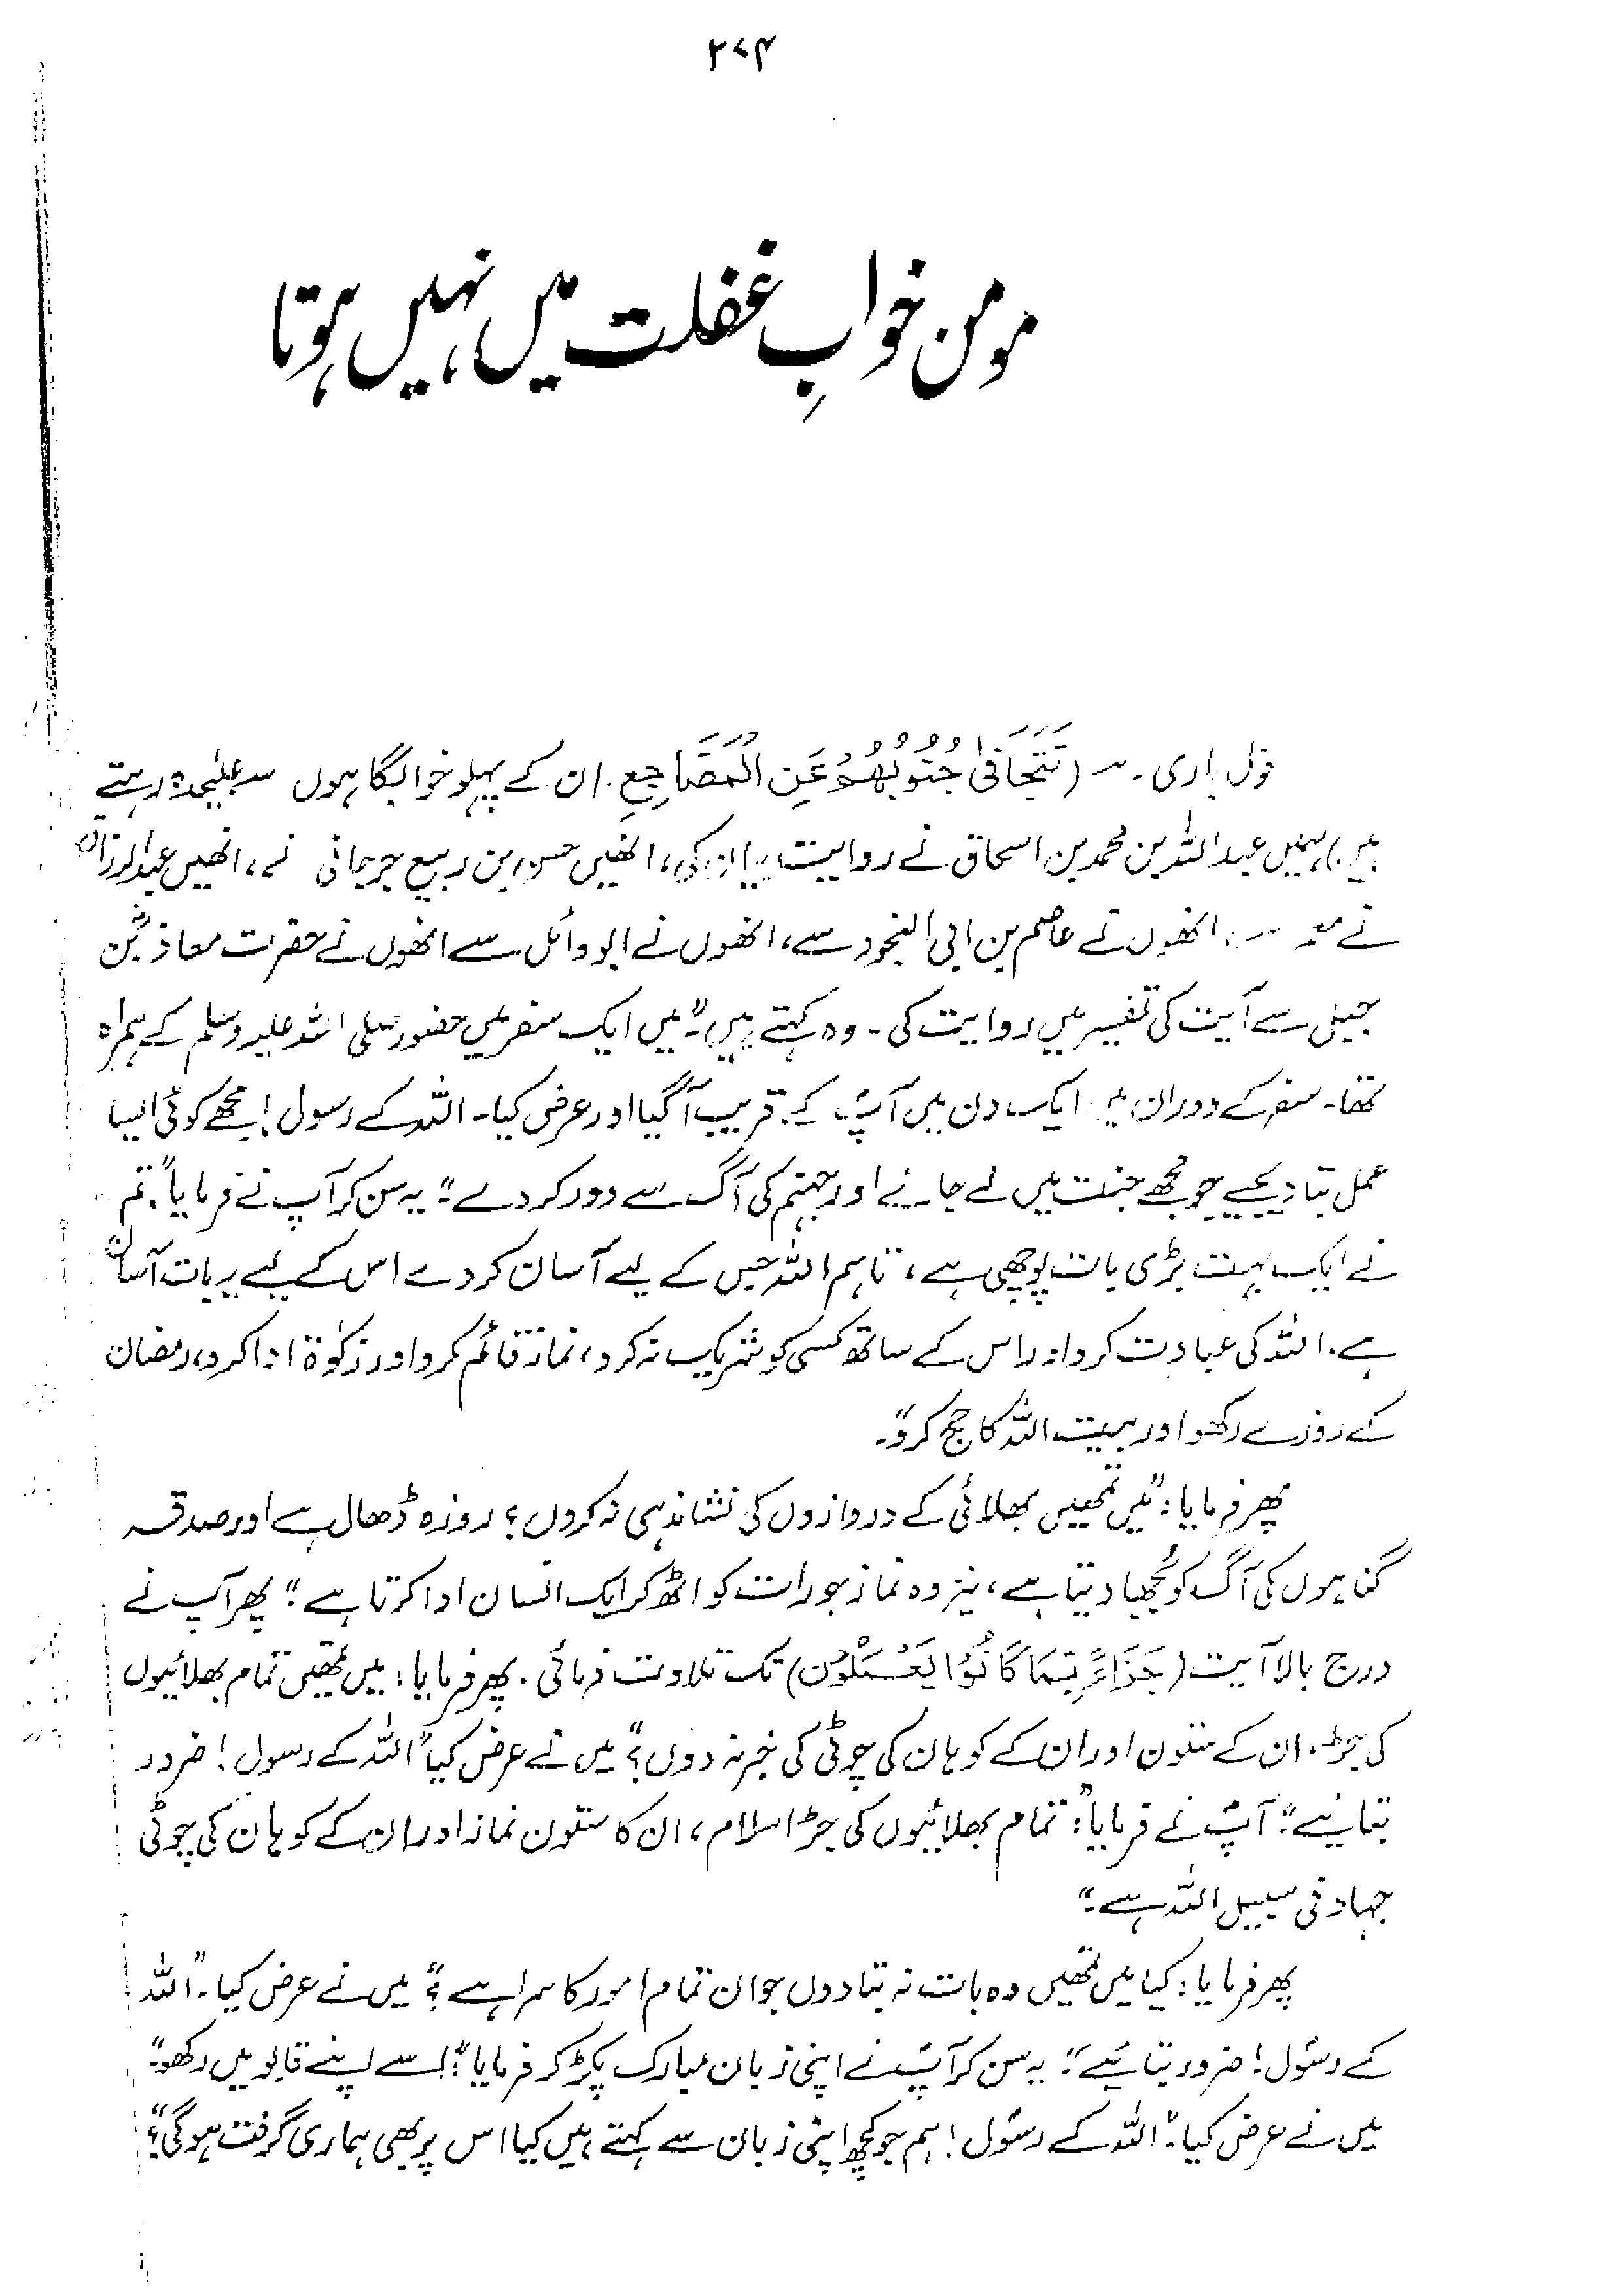 ۲۷۴
مومن خوابِ غفلت میں نہیں ہوتا
قول باری ہے (تَتَجَافٰی جُنُوْبُهُمْ عَنِ الْمَضَاجِعِ. ان کے پہلو خوابگاہوں سے علیٰحدہ رہتے
ہیں) ہمیں عبداللہ بن محمد بن اسحاق نے روایت بیان کی، انھیں حسن بن ربیع جرجانی نے، انھیں عبدالرزاق
نے معمر سے، انھوں نے عاصم بن ابی النجود سے، انھوں نے ابو وائل سے انھوں نے حضرت معاذؓ بن
جبل سے آیت کی تفسیر میں روایت کی۔ وہ کہتے ہیں۔ "میں ایک سفر میں حضور صلی اللہ علیہ وسلم کے ہمراہ
تھا۔ سفر کے دوران میں ایک دن میں آپؐ کے قریب آگیا اور عرض کیا۔ اللہ کے رسول! مجھے کوئی ایسا
عمل بتا دیجیے جو مجھے جنت میں لے جائے اور جہنم کی آگ سے دور کر دے۔" یہ سن کر آپ نے فرمایا: "تم
نے ایک بہت بڑی بات پوچھی ہے، تاہم اللہ جس کے لیے آسان کر دے اس کے لیے یہ بات آسان
ہے۔ اللہ کی عبادت کرو اور اس کے ساتھ کسی کو شریک نہ کرو، نماز قائم کرو اور زکوٰۃ ادا کرو، رمضان
کے روزے رکھو اور بیت اللہ کا حج کرو"۔
پھر فرمایا: "میں تمھیں بھلائی کے دروازوں کی نشاندہی نہ کروں؟ روزہ ڈھال ہے اور صدقہ
گناہوں کی آگ کو بُجھا دیتا ہے، نیز وہ نماز جو رات کو اٹھ کر ایک انسان ادا کرتا ہے۔" پھر آپ نے
درج بالا آیت (جَزَاءً بِمَا كَانُوْا يَعْمَلُوْنَ) تک تلاوت فرمائی۔ پھر فرمایا: میں تمھیں تمام بھلائیوں
کی جڑ، ان کے ستون اور ان کے کوہان کی چوٹی کی خبر نہ دوں؟" میں نے عرض کیا "اللہ کے رسول! ضرور
بتائیے"۔ آپؐ نے فرمایا: "تمام بھلائیوں کی جڑ اسلام، ان کا ستون نماز اور ان کے کوہان کی چوٹی
جہاد فی سبیل اللہ ہے۔"
پھر فرمایا: کیا میں تمھیں وہ بات نہ بتا دوں جو ان تمام امور کا سرا ہے؟" میں نے عرض کیا۔ "اللہ
کے رسول! ضرور بتائیے"۔ یہ سن کر آپؐ نے اپنی زبان مبارک پکڑ کر فرمایا: "اسے اپنے قابو میں رکھو۔"
میں نے عرض کیا: "اللہ کے رسول! ہم جو کچھ اپنی زبان سے کہتے ہیں کیا اس پر بھی ہماری گرفت ہوگی؟"